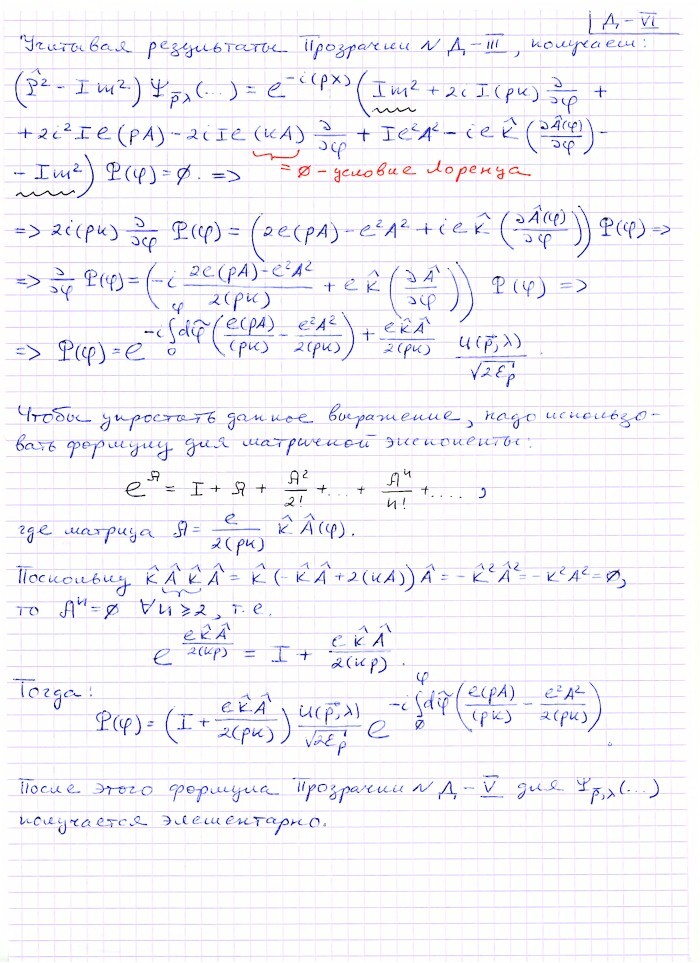 Д – VI
Учитывая результаты Прозрачки N Д – III, получаем:
(p̂² – I m²) Ψ_p̄λ(...) = e^{–i(px)} (I m² + 2i I(pκ) ∂/∂φ +
+ 2i² I e (pA) – 2i I e (κA) ∂/∂φ + I e²A² – i e κ̂ (∂Â(φ)/∂φ) –
– I m²) Φ(φ) = ∅. =>
= ∅ – условие Лоренца
=> 2i(pκ) ∂/∂φ Φ(φ) = (2e(pA) – e²A² + i e κ̂ (∂Â(φ)/∂φ)) Φ(φ) =>
=> ∂/∂φ Φ(φ) = (–i (2e(pA) – e²A²)/(2(pκ)) + e κ̂ (∂Â/∂φ)) Φ(φ) =>
=> Φ(φ) = e^{–i∫₀^φ dφ̃ (e(pA)/(pκ) – e²A²/(2(pκ))) + eκ̂Â/(2(pκ))} u(p̄,λ)/√(2ε_p̄).
Чтобы упростить данное выражение, надо использо-
вать формулу для матричной экспоненты:
e^Я = I + Я + Я²/2! + ... + Я^n/n! + ....,
где матрица Я = e/(2(pκ)) κ̂ Â(φ).
Поскольку κ̂ Â κ̂ Â = κ̂ (– κ̂ Â + 2(κA)) Â = – κ̂² Â² = – κ²A² = ∅,
то Я^n = ∅ ∀ n ≥ 2, т.е.
e^{eκ̂Â/(2(κp))} = I + eκ̂Â/(2(κp)).
Тогда:
Φ(φ) = (I + eκ̂Â/(2(pκ))) u(p̄,λ)/√(2ε_p̄) e^{–i∫_∅^φ dφ̃ (e(pA)/(pκ) – e²A²/(2(pκ)))}.
После этого формула Прозрачки N Д – V для Ψ_p̄,λ(...)
получается элементарно.